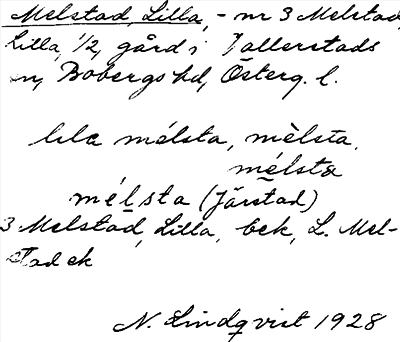 Melstad, Lilla, - nr 3 Melstad,
Lilla, 1/2, gård i Jallerstads
sn, Bobergs hd, Österg. l.
lila mélsta, mèlsta,
mélsta
mélsta (Järstad)
3 Melstad, Lilla, bek, L. Mel-
stad ek
N. Lindqvist 1928